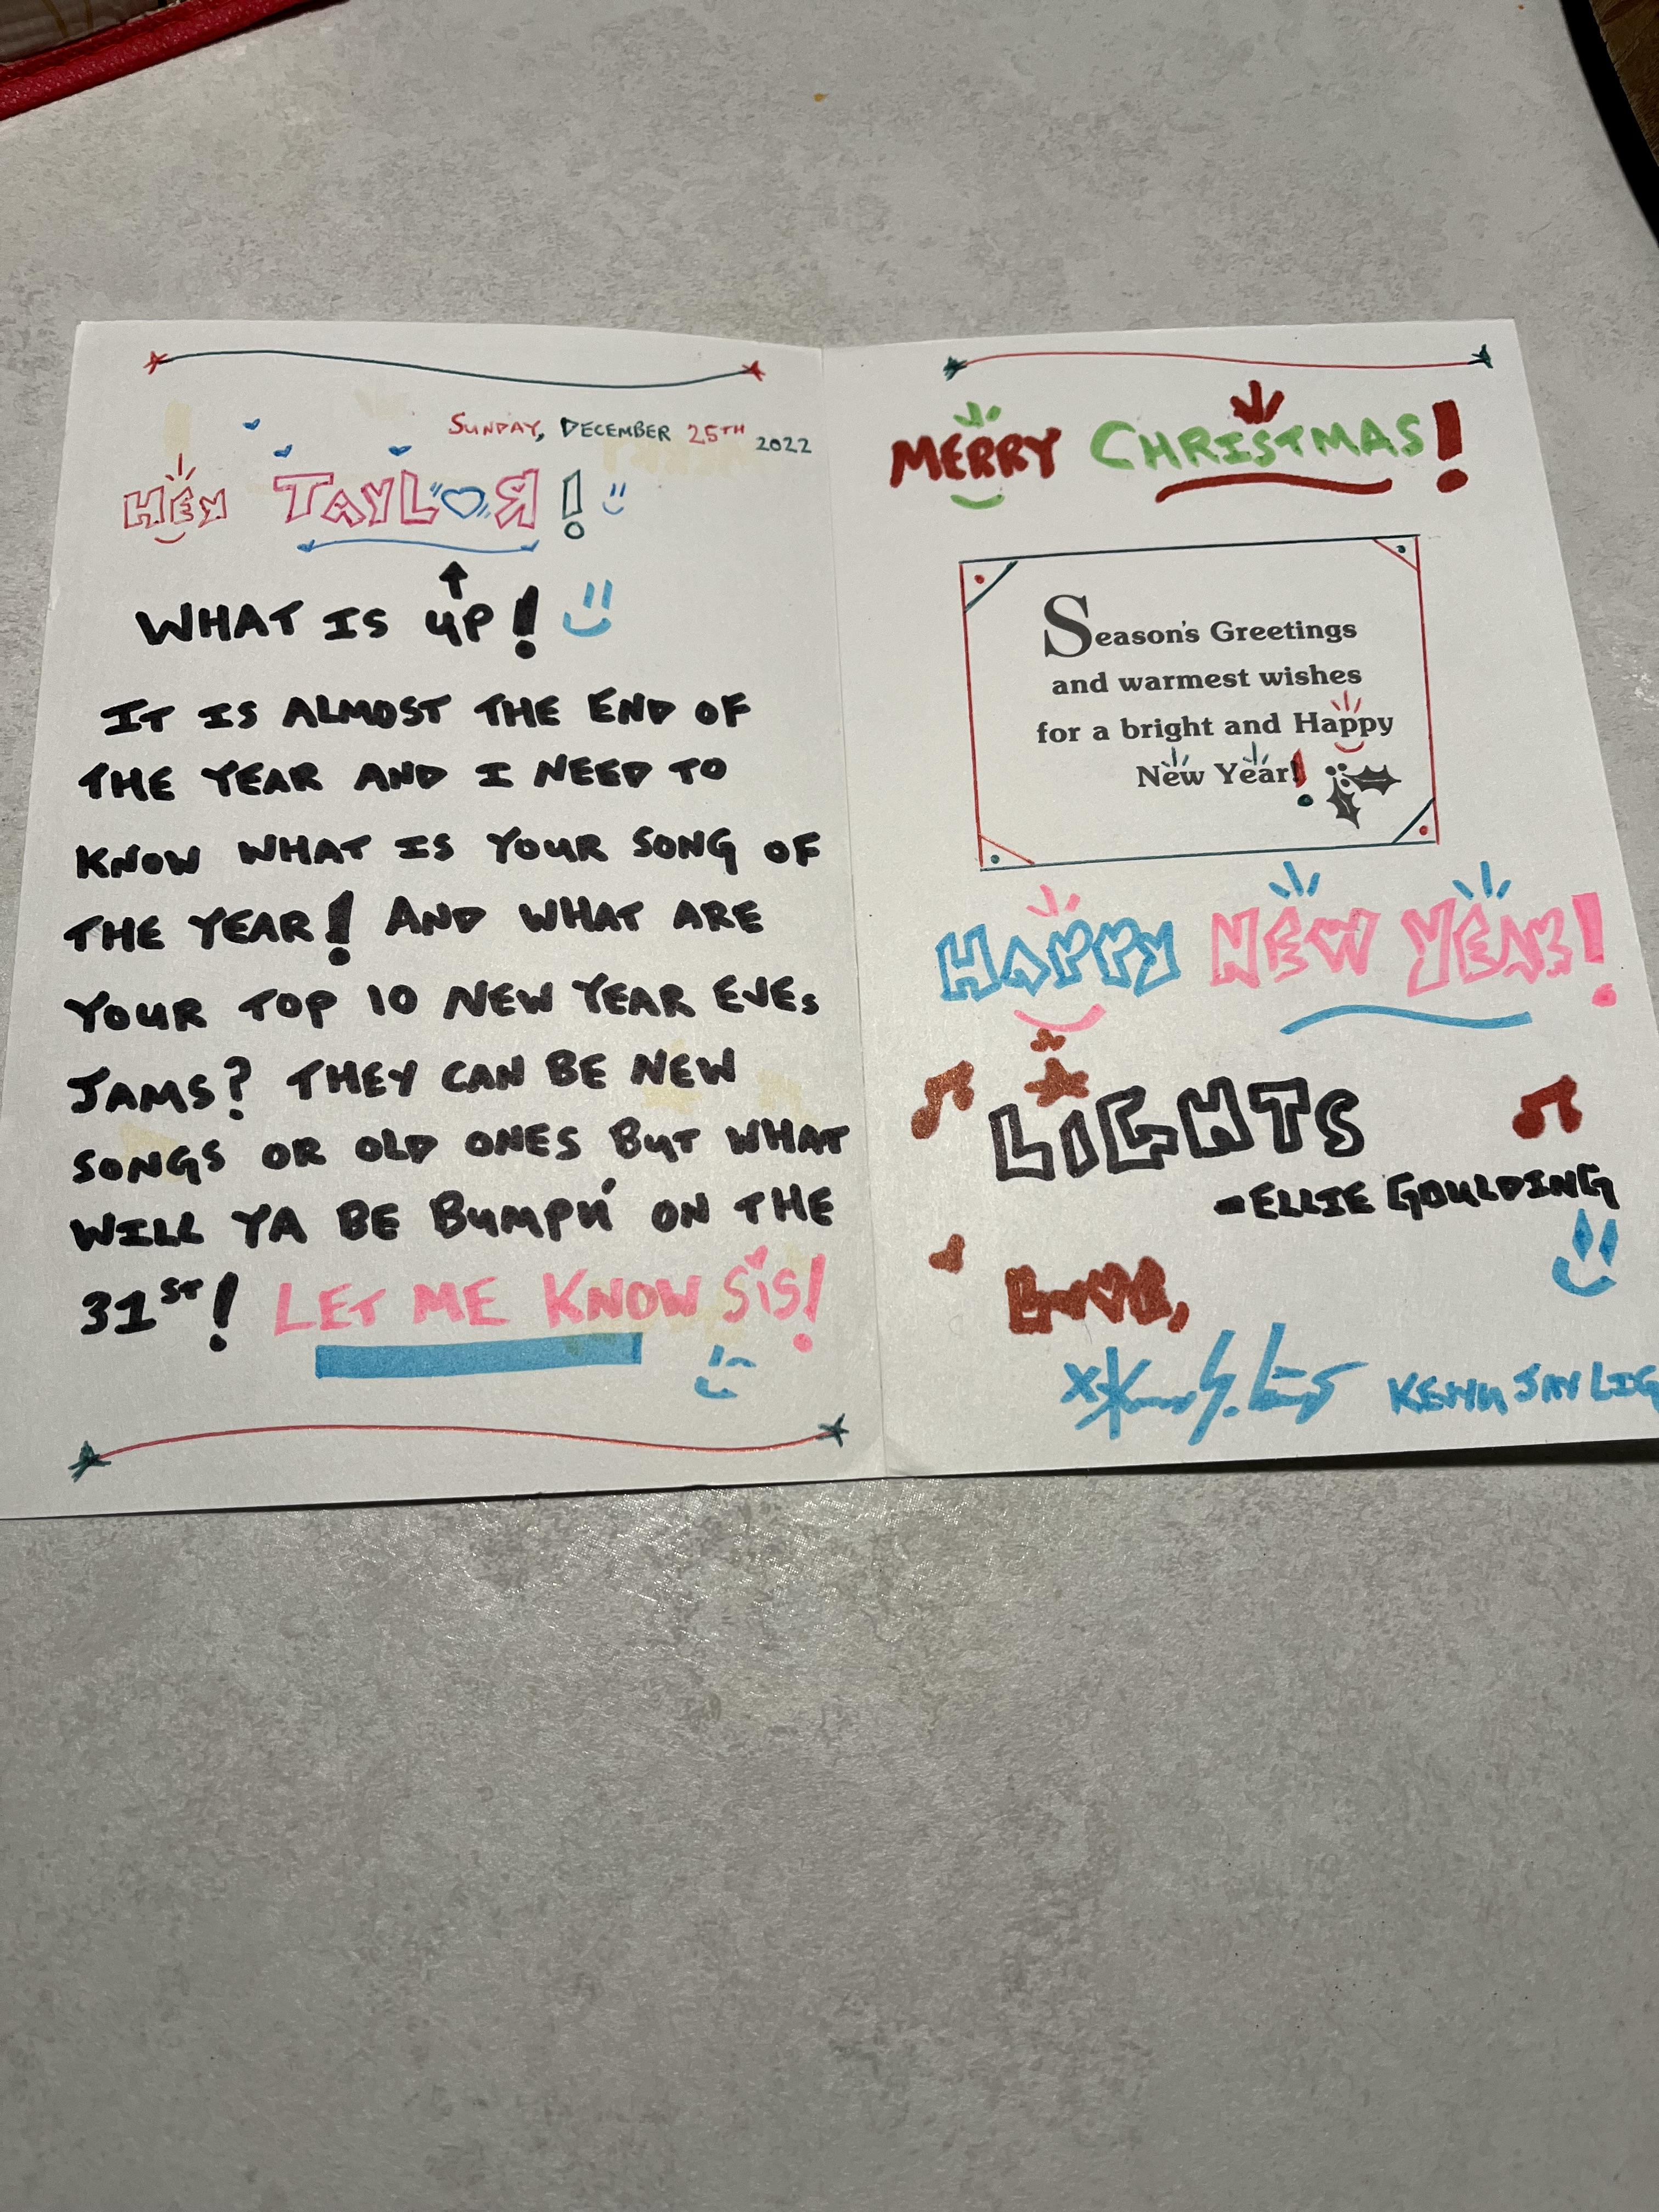 SUNDAY, DECEMBER 25TH 2022
HEY TAYLOR!
WHAT IS UP!
IT IS ALMOST THE END OF
THE YEAR AND I NEED TO
KNOW WHAT IS YOUR SONG OF
THE YEAR! AND WHAT ARE
YOUR TOP 10 NEW YEAR EVES
JAMS? THEY CAN BE NEW
SONGS OR OLD ONES BUT WHAT
WILL YA BE BUMPN' ON THE
31ST! LET ME KNOW SIS!
MERRY CHRISTMAS!
Season's Greetings
and warmest wishes
for a bright and Happy
New Year!
HAPPY NEW YEAR!
LIGHTS
-ELLIE GOULDING
LOVE,
JAY LIG